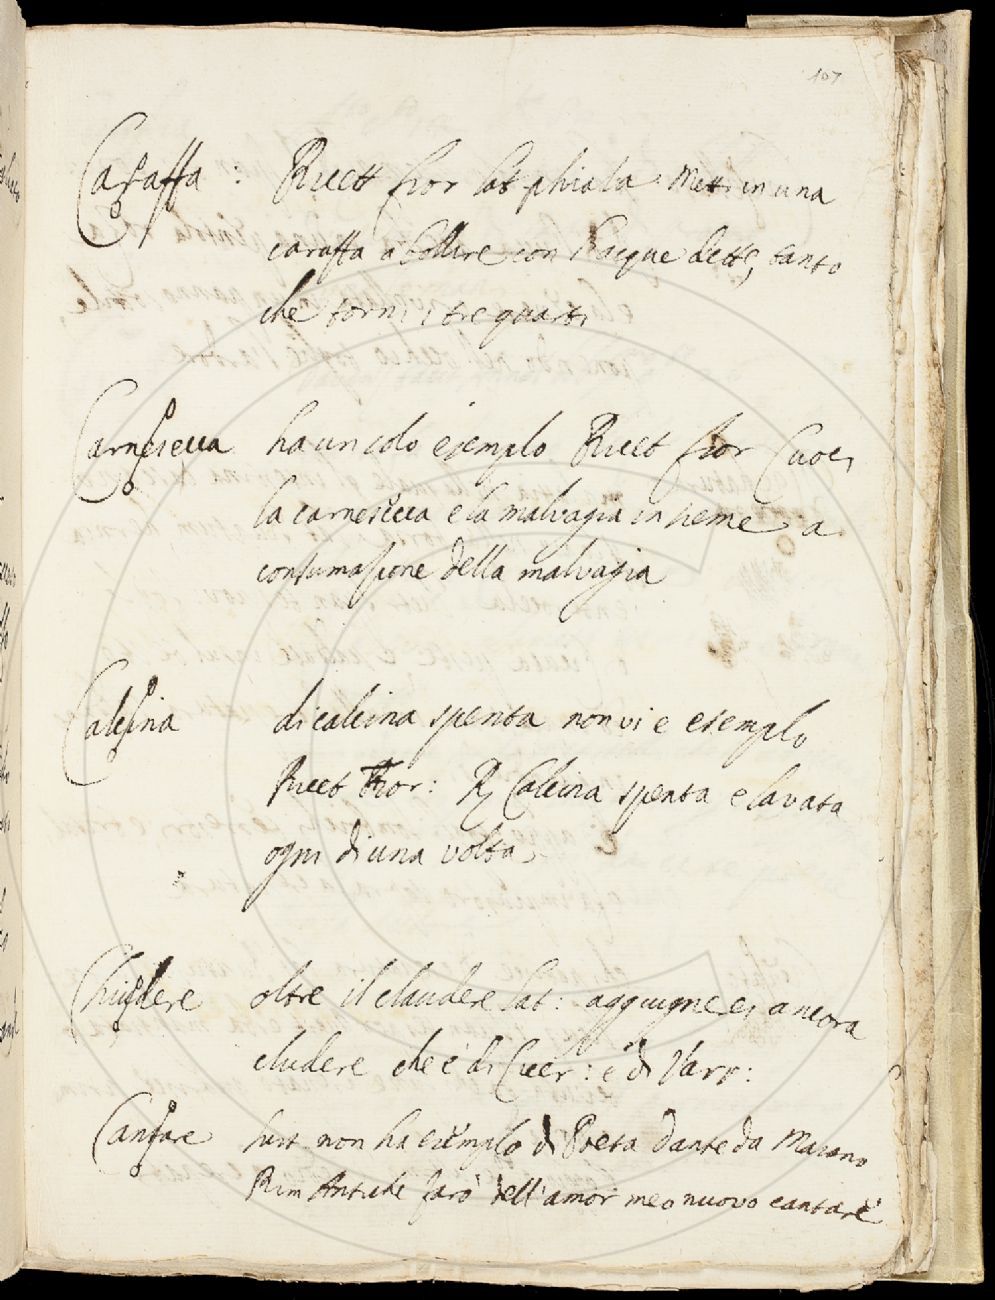 107
Caraffa : Ricett fior lat phiala. Metti in una
caraffa a bollire con l'acque dette, tanto
che torni i tre quarti
Carnesecca ha un solo esempio Ricet fior Cuoci
la carnesecca e la malvagia insieme a
consumazione della malvagia
Calcina di calcina spenta non vi e esempio
Ricet Fior: R Calcina spenta e lavata
ogni di una volta.
Chiudere oltre il claudere Lat: aggiugnesi ancora
cludere che è di Cicer: e di Varr:
Cantare sust non ha esempio di Poeta Dante da Maiano
Rim Antiche farò dell'amor meo nuovo cantare